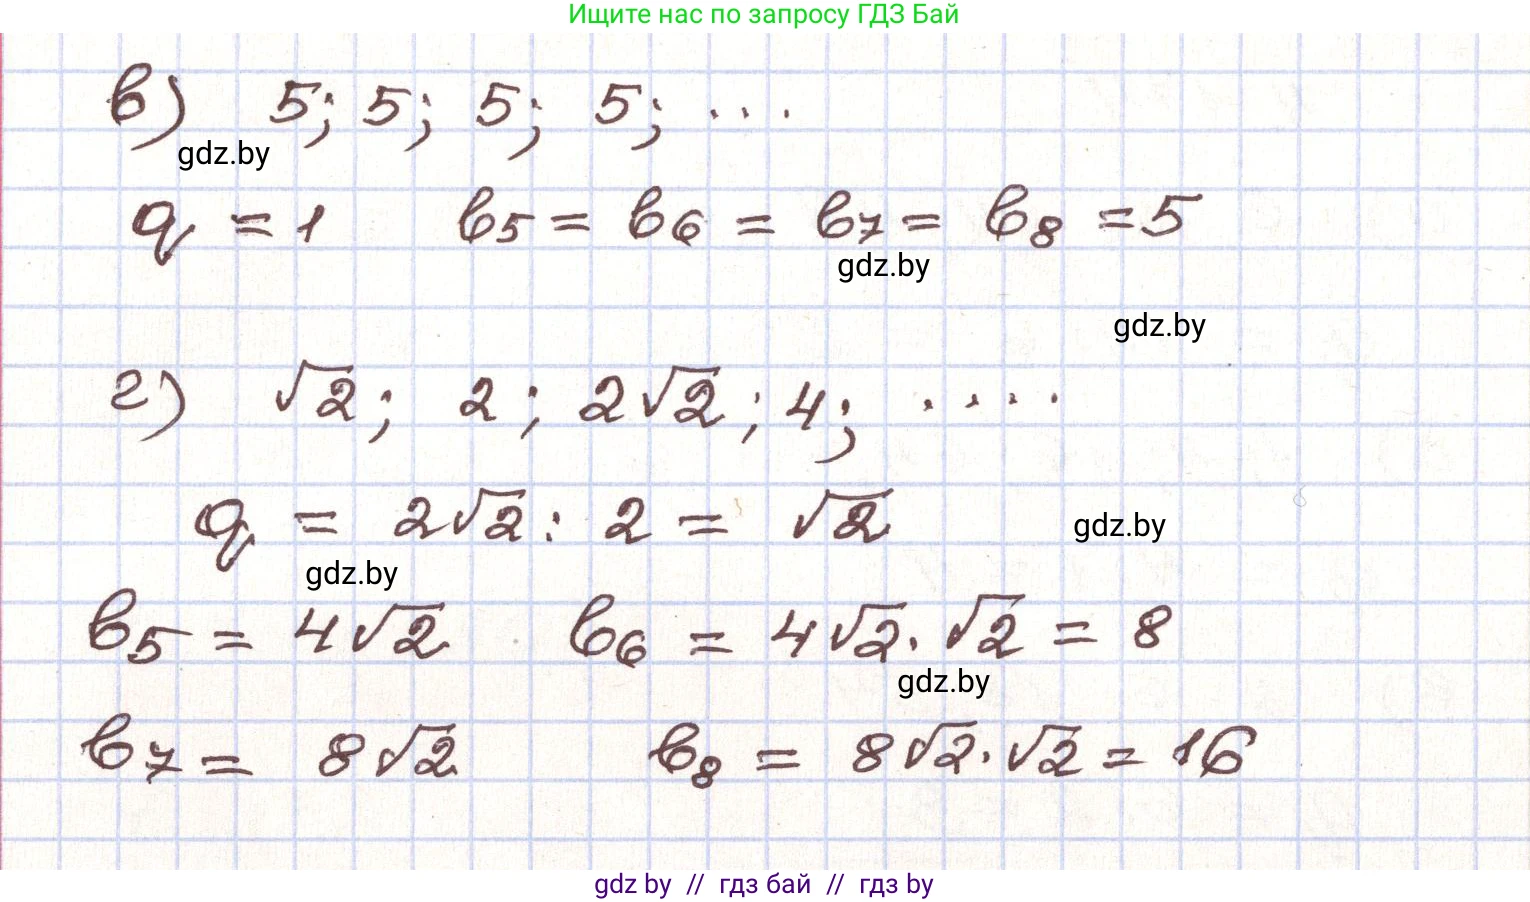 Ищите нас по запросу ГДЗ Бай
в) 5; 5; 5; 5; ...
gdz.by
q = 1 b5 = b6 = b7 = b8 = 5
gdz.by
gdz.by
г) √2; 2; 2√2; 4; ....
q = 2√2 : 2 = √2
gdz.by
gdz.by
b5 = 4√2 b6 = 4√2 · √2 = 8
gdz.by
b7 = 8√2 b8 = 8√2 · √2 = 16
gdz by // гдз бай // гдз by